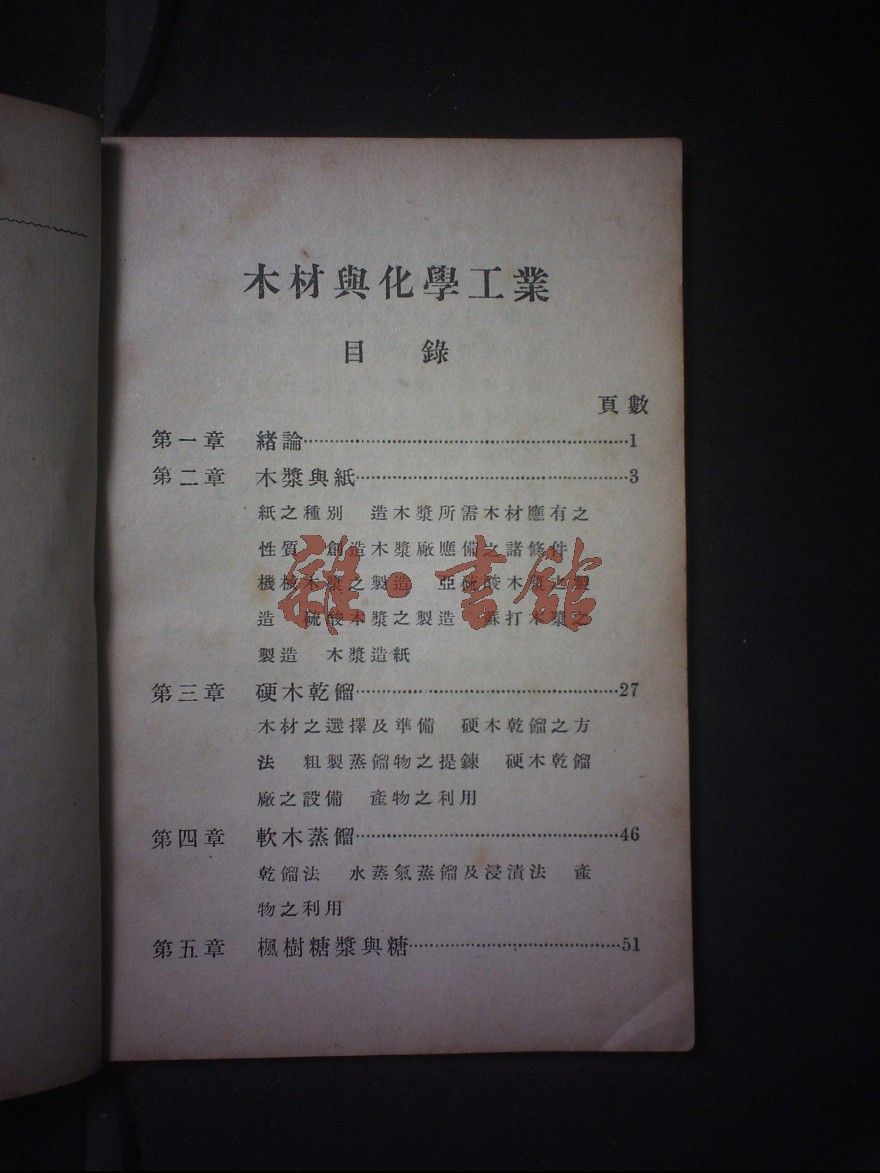 木材與化學工業
目錄
頁數
第一章 緒論……1
第二章 木漿與紙……3
紙之種別 造木漿所需木材應有之
性質 創造木漿廠應備之諸條件
機械木漿之製造 亞硫酸木漿之製
造 硫酸木漿之製造 蘇打木漿之
製造 木漿造紙
第三章 硬木乾餾……27
木材之選擇及準備 硬木乾餾之方
法 粗製蒸餾物之提鍊 硬木乾餾
廠之設備 產物之利用
第四章 軟木蒸餾……46
乾餾法 水蒸氣蒸餾及浸漬法 產
物之利用
第五章 楓樹糖漿與糖……51
雜·書館